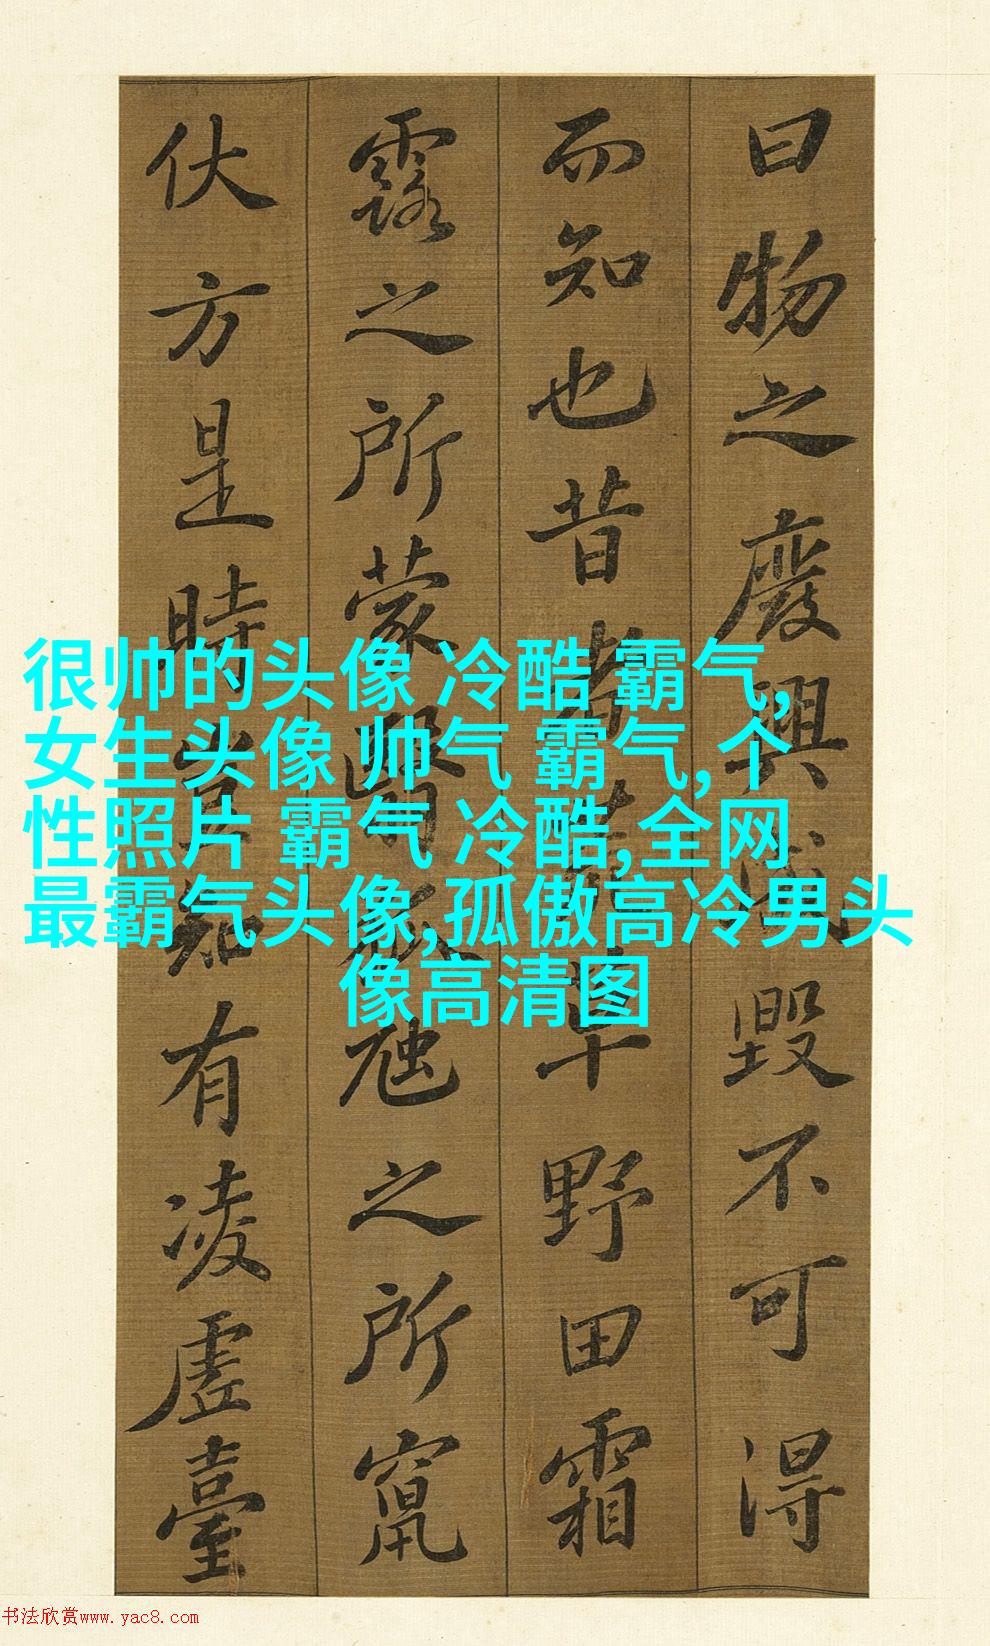 曰物之廢興成毀不可得
而知也昔者荒草野田霜
露之所蒙翳狐虺之所竄
伏方是時豈知有凌虛臺
很帅的头像 冷酷 霸气,
女生头像 帅气 霸气,个
性照片 霸气 冷酷,全网
最霸气头像,孤傲高冷男头
像高清图
书法欣赏www.yac8.com